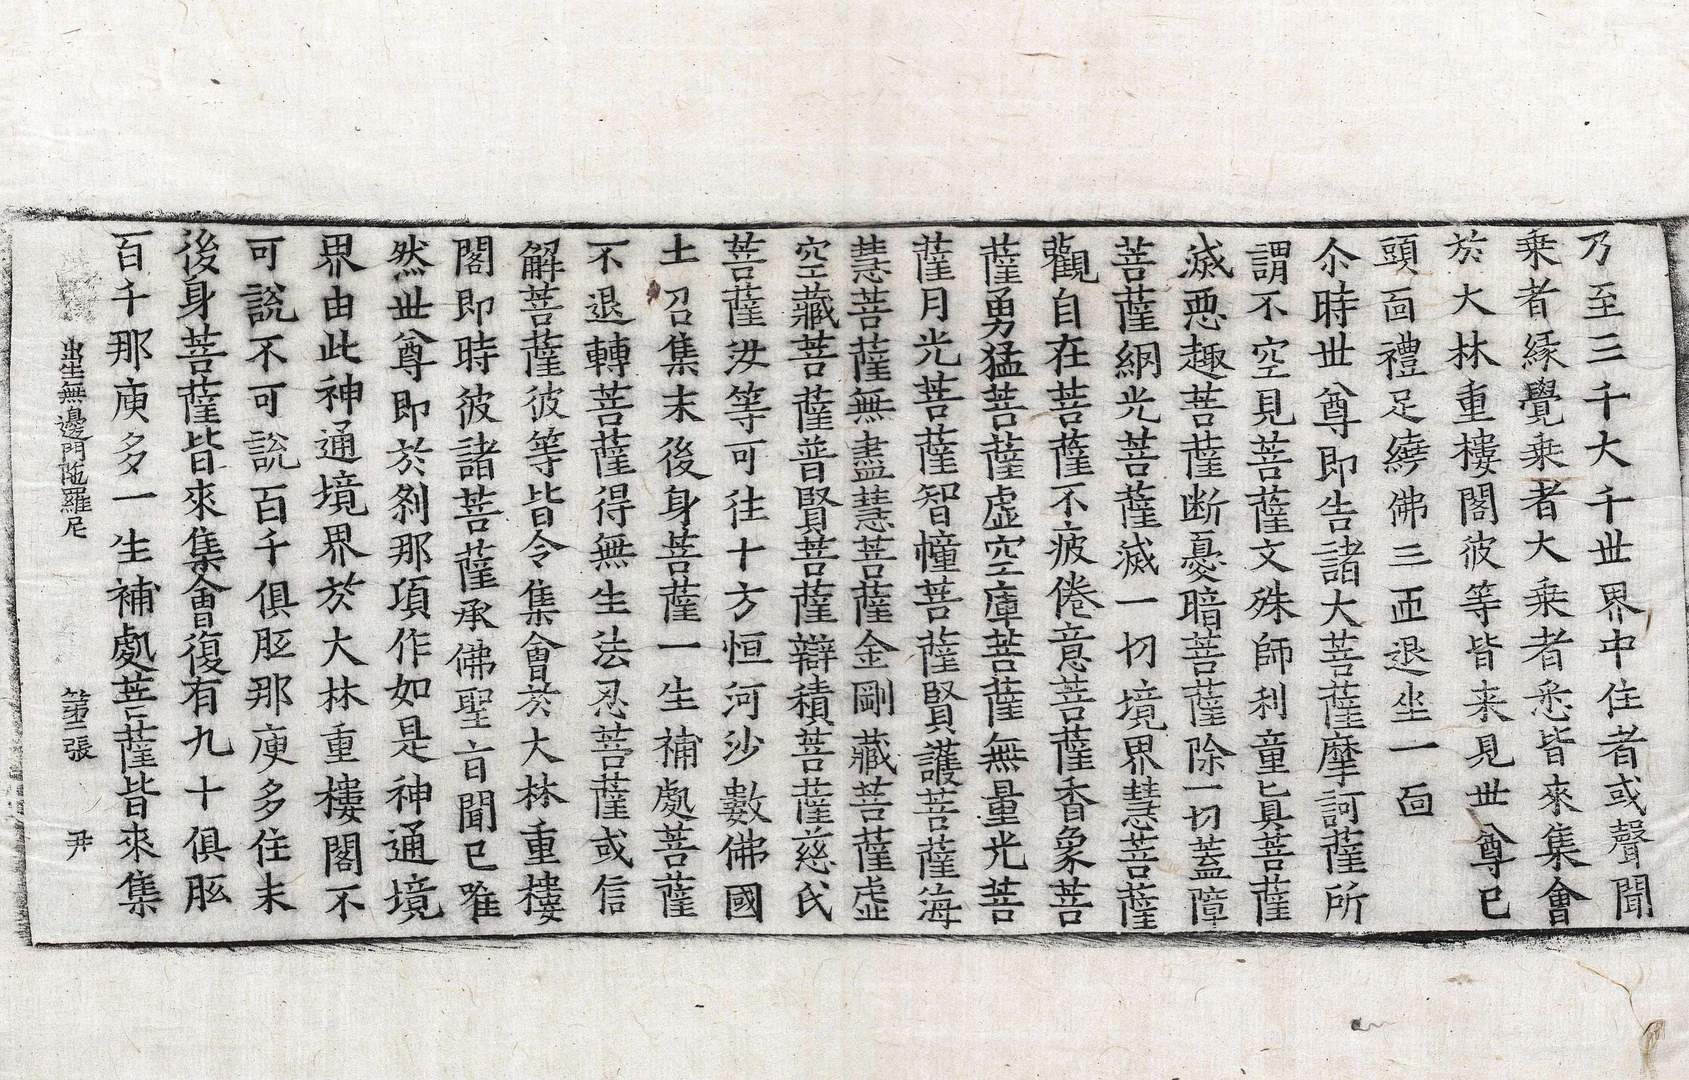 乃至三千大千世界中住者或聲聞
乗者縁覺乗者大乗者悉皆來集會
於大林重樓閣彼等皆来見世尊已
頭面禮足繞佛三匝退坐一面
尒時世尊即告諸大菩薩摩訶薩所
謂不空見菩薩文殊師利童真菩薩
滅惡趣菩薩断憂暗菩薩除一切蓋障
菩薩網光菩薩滅一切境界慧菩薩
觀自在菩薩不疲倦意菩薩香象菩
薩勇猛菩薩虛空庫菩薩無量光菩
薩月光菩薩智幢菩薩賢護菩薩海
慧菩薩無盡慧菩薩金剛藏菩薩虛
空藏菩薩普賢菩薩辯積菩薩慈氏
菩薩汝等可往十方恒河沙數佛國
土召集末後身菩薩一生補處菩薩
不退轉菩薩得無生法忍菩薩或信
解菩薩彼等皆令集會於大林重樓
閣即時彼諸菩薩承佛聖旨聞已唯
然世尊即於剎那項作如是神通境
界由此神通境界於大林重樓閣不
可說不可說百千俱胝那庾多住末
後身菩薩皆來集會復有九十俱胝
百千那庾多一生補處菩薩皆來集
出生無邊門陁羅尼 第二張 尹